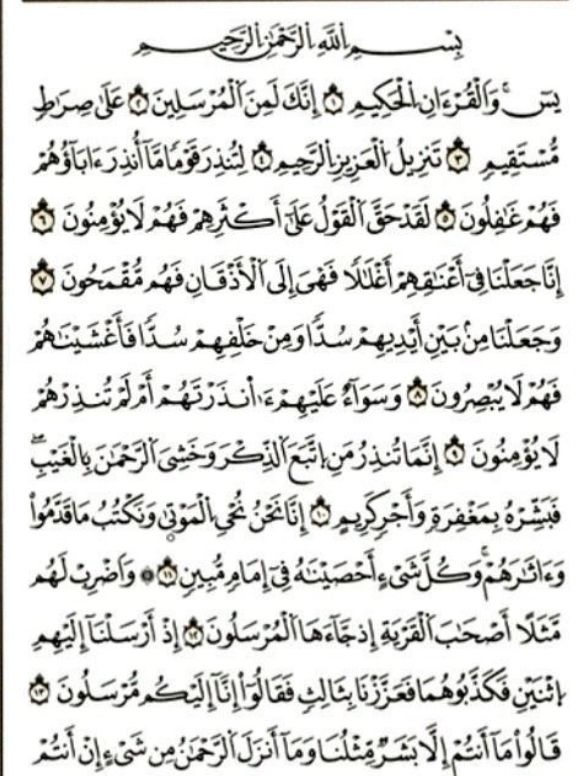 بِسْمِ اِللَّهِ اِلرَّحْمَٰنِ اِلرَّحِيمِ
يسٓۚ وَالْقُرْءَانِ اِلْحَكِيمِ ١ إِنَّكَ لَمِنَ اَلْمُرْسَلِينَ ٢ عَلَىٰ صِرَٰطٍ
مُّسْتَقِيمٍ ٣ تَنزِيلُ اُلْعَزِيزِ اِلرَّحِيمِ ٤ لِتُنذِرَ قَوْمًا مَّآ أُنذِرَ ءَابَآؤُهُمْ
فَهُمْ غَٰفِلُونَ ٥ لَقَدْ حَقَّ اَلْقَوْلُ عَلَىٰٓ أَكْثَرِهِمْ فَهُمْ لَا يُؤْمِنُونَ ٦
إِنَّا جَعَلْنَا فِىٓ أَعْنَٰقِهِمْ أَغْلَٰلًا فَهْىَ إِلَى اَلْأَذْقَانِ فَهُم مُّقْمَحُونَ ٧
وَجَعَلْنَا مِنۢ بَيْنِ أَيْدِيهِمْ سُدًّا وَمِنْ خَلْفِهِمْ سُدًّا فَأَغْشَيْنَٰهُمْ
فَهُمْ لَا يُبْصِرُونَ ٨ وَسَوَآءٌ عَلَيْهِمْ ءَا۬نذَرْتَهُمْ أَمْ لَمْ تُنذِرْهُمْ
لَا يُؤْمِنُونَ ٩ إِنَّمَا تُنذِرُ مَنِ اِتَّبَعَ اَلذِّكْرَ وَخَشِىَ اَلرَّحْمَٰنَ بِالْغَيْبِۖ
فَبَشِّرْهُ بِمَغْفِرَةٍ وَأَجْرٍ كَرِيمٍ ١٠ إِنَّا نَحْنُ نُحْىِ اِلْمَوْتَىٰ وَنَكْتُبُ مَا قَدَّمُوا۟
وَءَاثَٰرَهُمْۚ وَكُلَّ شَىْءٍ أَحْصَيْنَٰهُ فِىٓ إِمَامٍ مُّبِينٍ ١١ ۞ وَاضْرِبْ لَهُم
مَّثَلًا أَصْحَٰبَ اَلْقَرْيَةِ إِذ جَّآءَهَا اَلْمُرْسَلُونَ ١٢ إِذْ أَرْسَلْنَآ إِلَيْهِمِ
اِثْنَيْنِ فَكَذَّبُوهُمَا فَعَزَّزْنَا بِثَالِثٍ فَقَالُوٓا۟ إِنَّآ إِلَيْكُم مُّرْسَلُونَ ١٣
قَالُوا۟ مَآ أَنتُمْ إِلَّا بَشَرٌ مِّثْلُنَا وَمَآ أَنزَلَ اَلرَّحْمَٰنُ مِن شَىْءٍ إِنْ أَنتُمْ